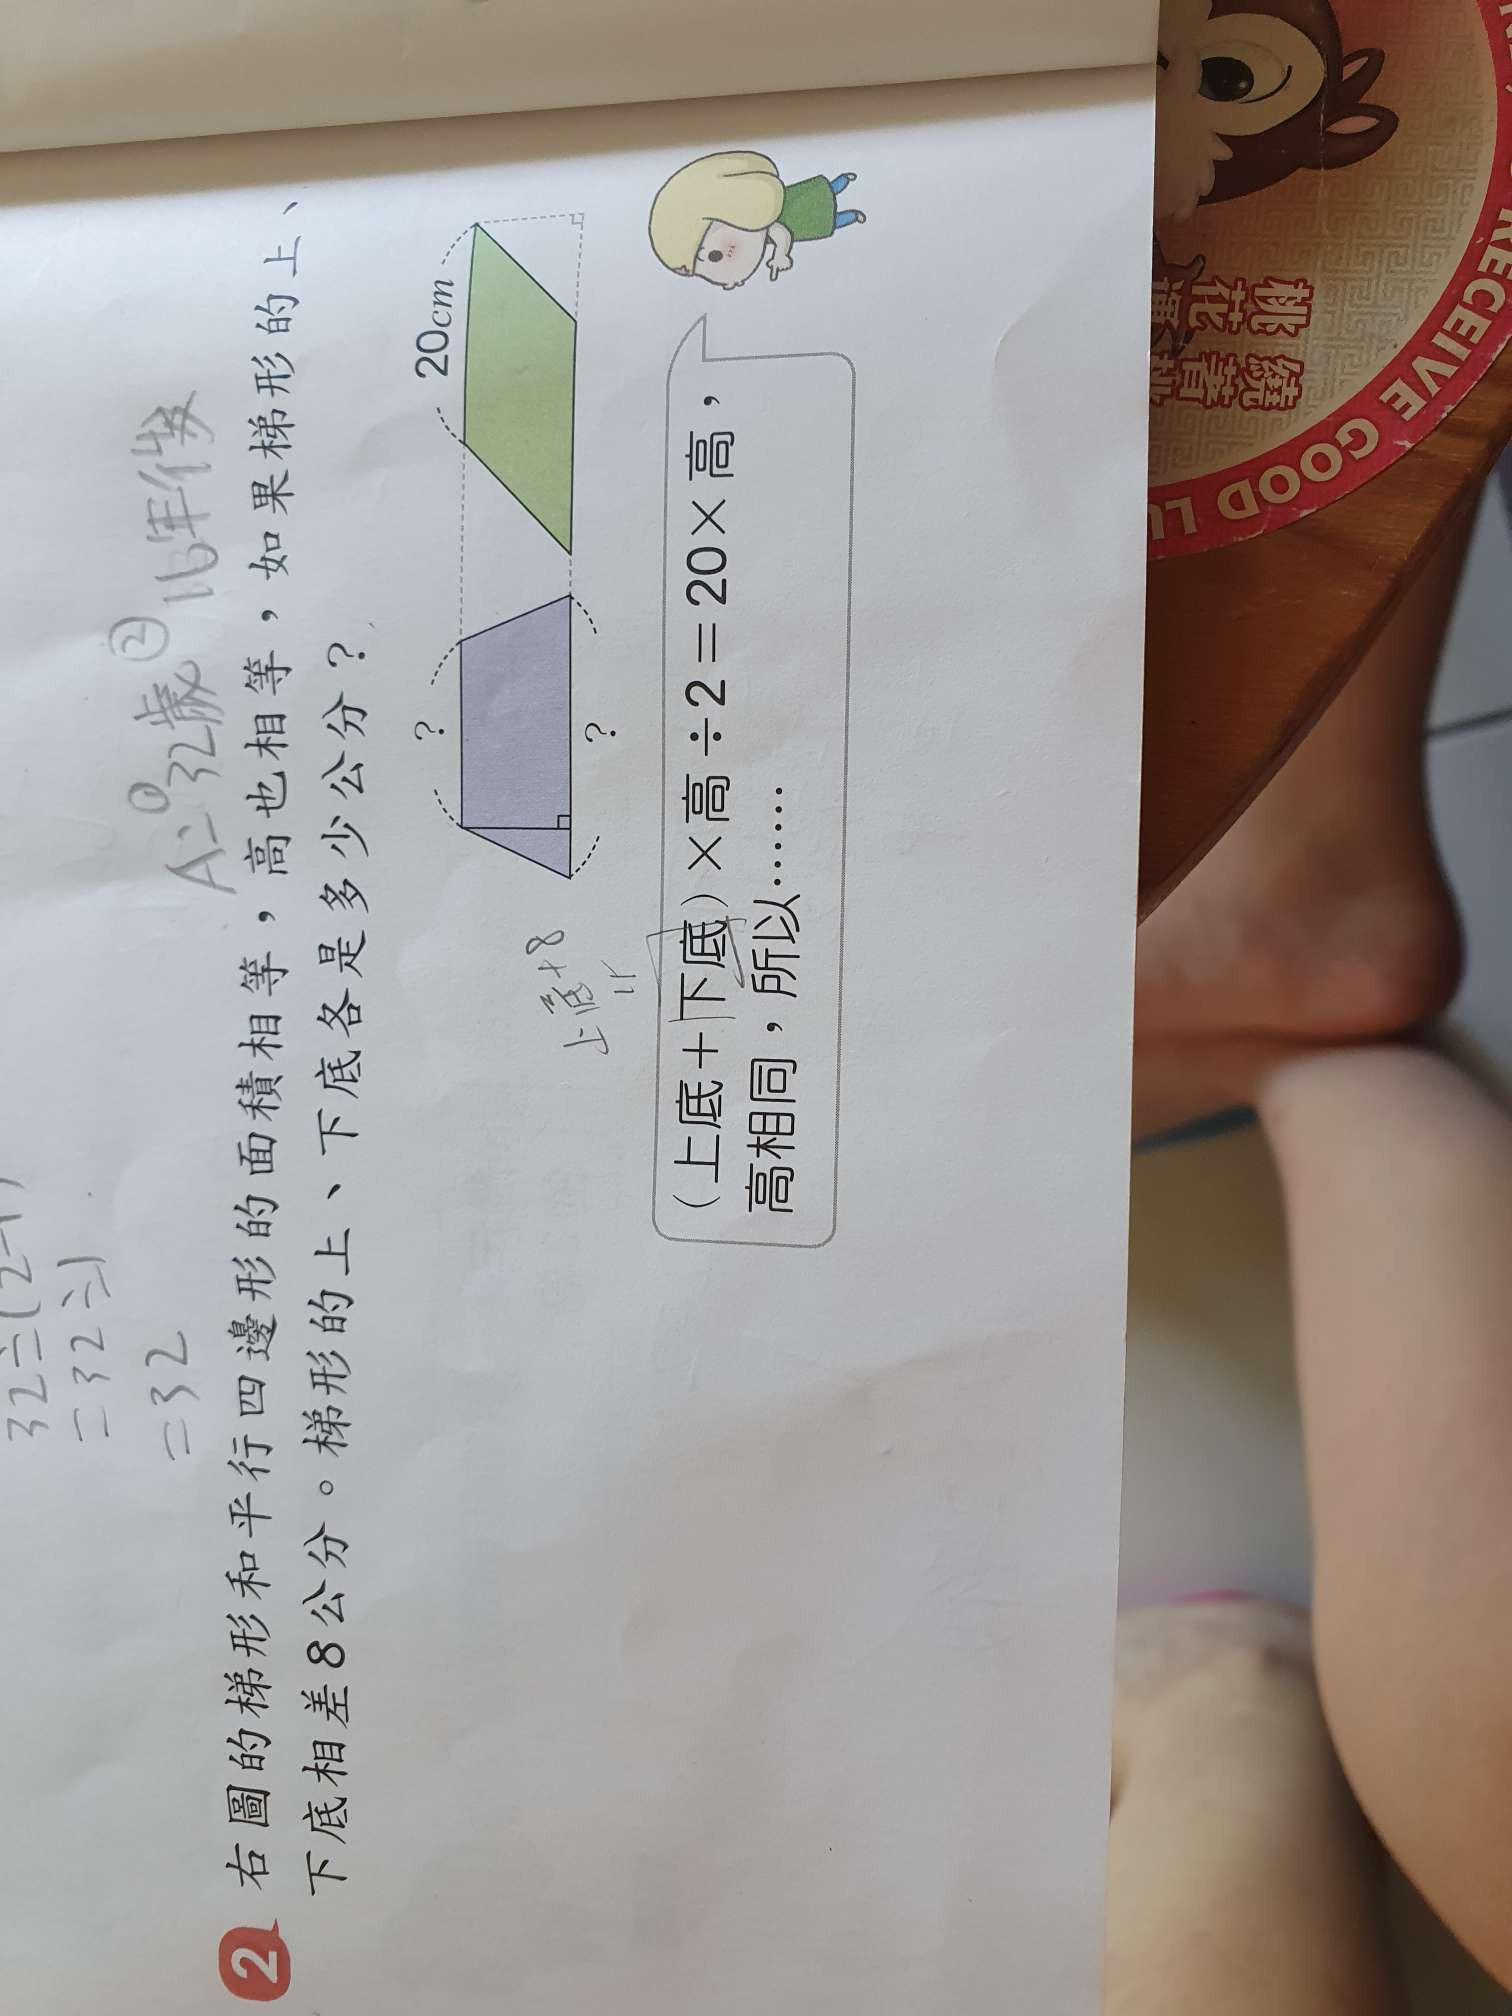 32÷(2-1)
=32÷1
=32
A=①32歲②116年後
2 右圖的梯形和平行四邊形的面積相等,高也相等,如果梯形的上、
下底相差8公分。梯形的上、下底各是多少公分?
? 20cm
?
上底+8
(上底+下底)×高÷2=20×高,
高相同,所以……
RECEIVE GOOD LU
桃花
繞著